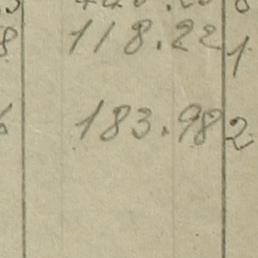 8 118.22 1
183.98 2